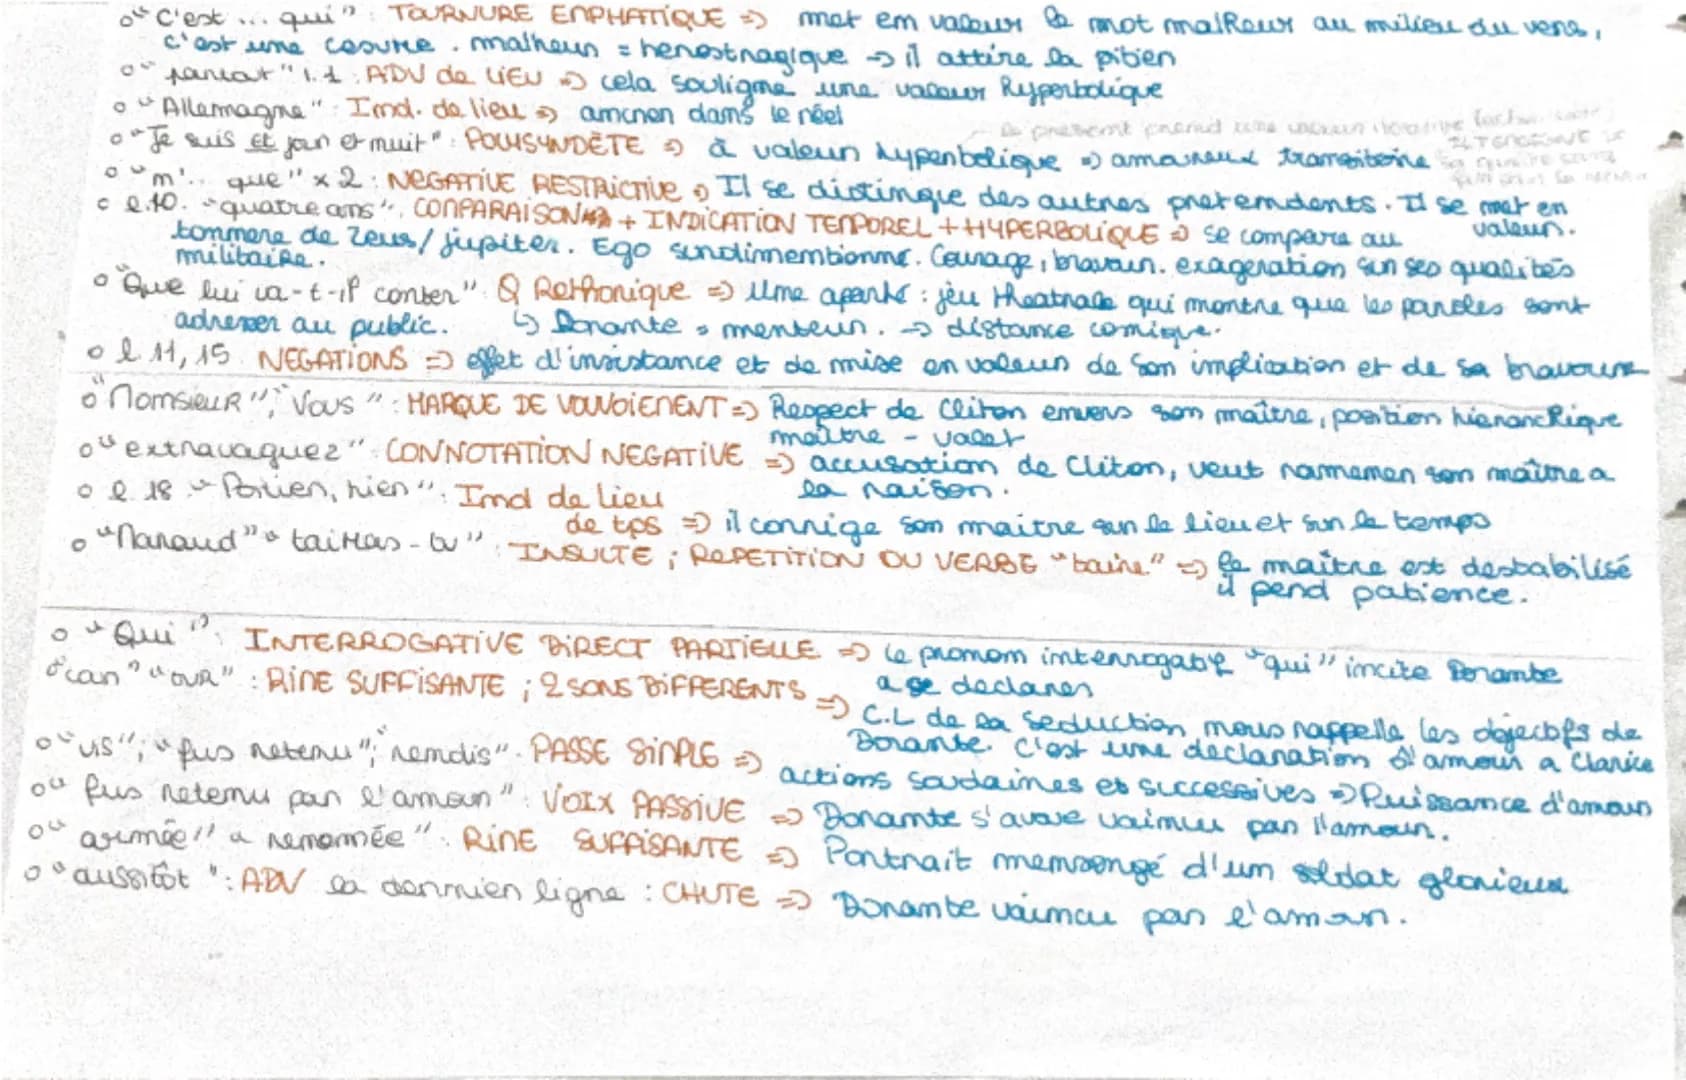 o "C'est ... qui" : TOURNURE EMPHATIQUE => met em valeur le mot malheur au milieu du vers,
c'est une cesure . malheur = herostragique -> il attire la pitier
o "partout" l.1 : ADV de LIEU => cela souligne une valeur hyperbolique
o "Allemagne" : Ind. de lieu => amener dans le réel
o "Je suis et jour et nuit" : POLYSYNDÈTE => à valeur hyperbolique => amoureux transitoire
o "m'... que" x 2 : NEGATIVE RESTRICTIVE => Il se distingue des autres pretendents. Il se met en valeur.
o l.10. "quatre ans". COMPARAISON + INDICATION TEMPOREL + HYPERBOLIQUE => se compare au
tonnere de Zeus/jupiter. Ego surdimentionné. Courage, bravour. exageration sur ses qualités
militaire.
o "Que lui va-t-il conter" Q Rethorique => Une aparté : jeu theatrale qui montre que les paroles sont
adresser au public. ↳ Dorante = menteur. -> distance comique.
o l 11, 15 NEGATIONS => effet d'insistance et de mise en valeur de son implication et de sa bravoure
o "Monsieur", "Vous" : MARQUE DE VOUVOIEMENT => Respect de Cliton envers son maître, position hierarchique
maître - valet
o "extravaguez" : CONNOTATION NEGATIVE => accusation de Cliton, veut ramener son maître a
la raison.
o l 18 "Poitiers, hier" : Ind de lieu
de tps => il corrige son maitre sur le lieu et sur le temps
o "Maraud" "tairras-tu" : INSULTE ; REPETITION DU VERBE "taire" => le maître est destabilisé
il perd patience.
o "Qui" : INTERROGATIVE DIRECT PARTIELLE => le pronom interrogatif "qui" incite Dorante
a se declarer
o "can" "our" : RIME SUFFISANTE ; 2 SONS DIFFERENTS => C.L de la seduction nous rappelle les objectifs de
Dorante. C'est une declaration d'amour a Clarice
o "vis" ; "fus retenu" ; "rendis" . PASSE SIMPLE => actions soudaines et successives => Puissance d'amour
o "fus retenu par l'amour" : VOIX PASSIVE => Dorante s'avoue vaincu par l'amour.
o "armée" "renommée" : RIME SUFFISANTE => Portrait mensongé d'un soldat glorieux
o "aussitôt" : ADV la dernier ligne : CHUTE => Dorante vaincu par l'amour.